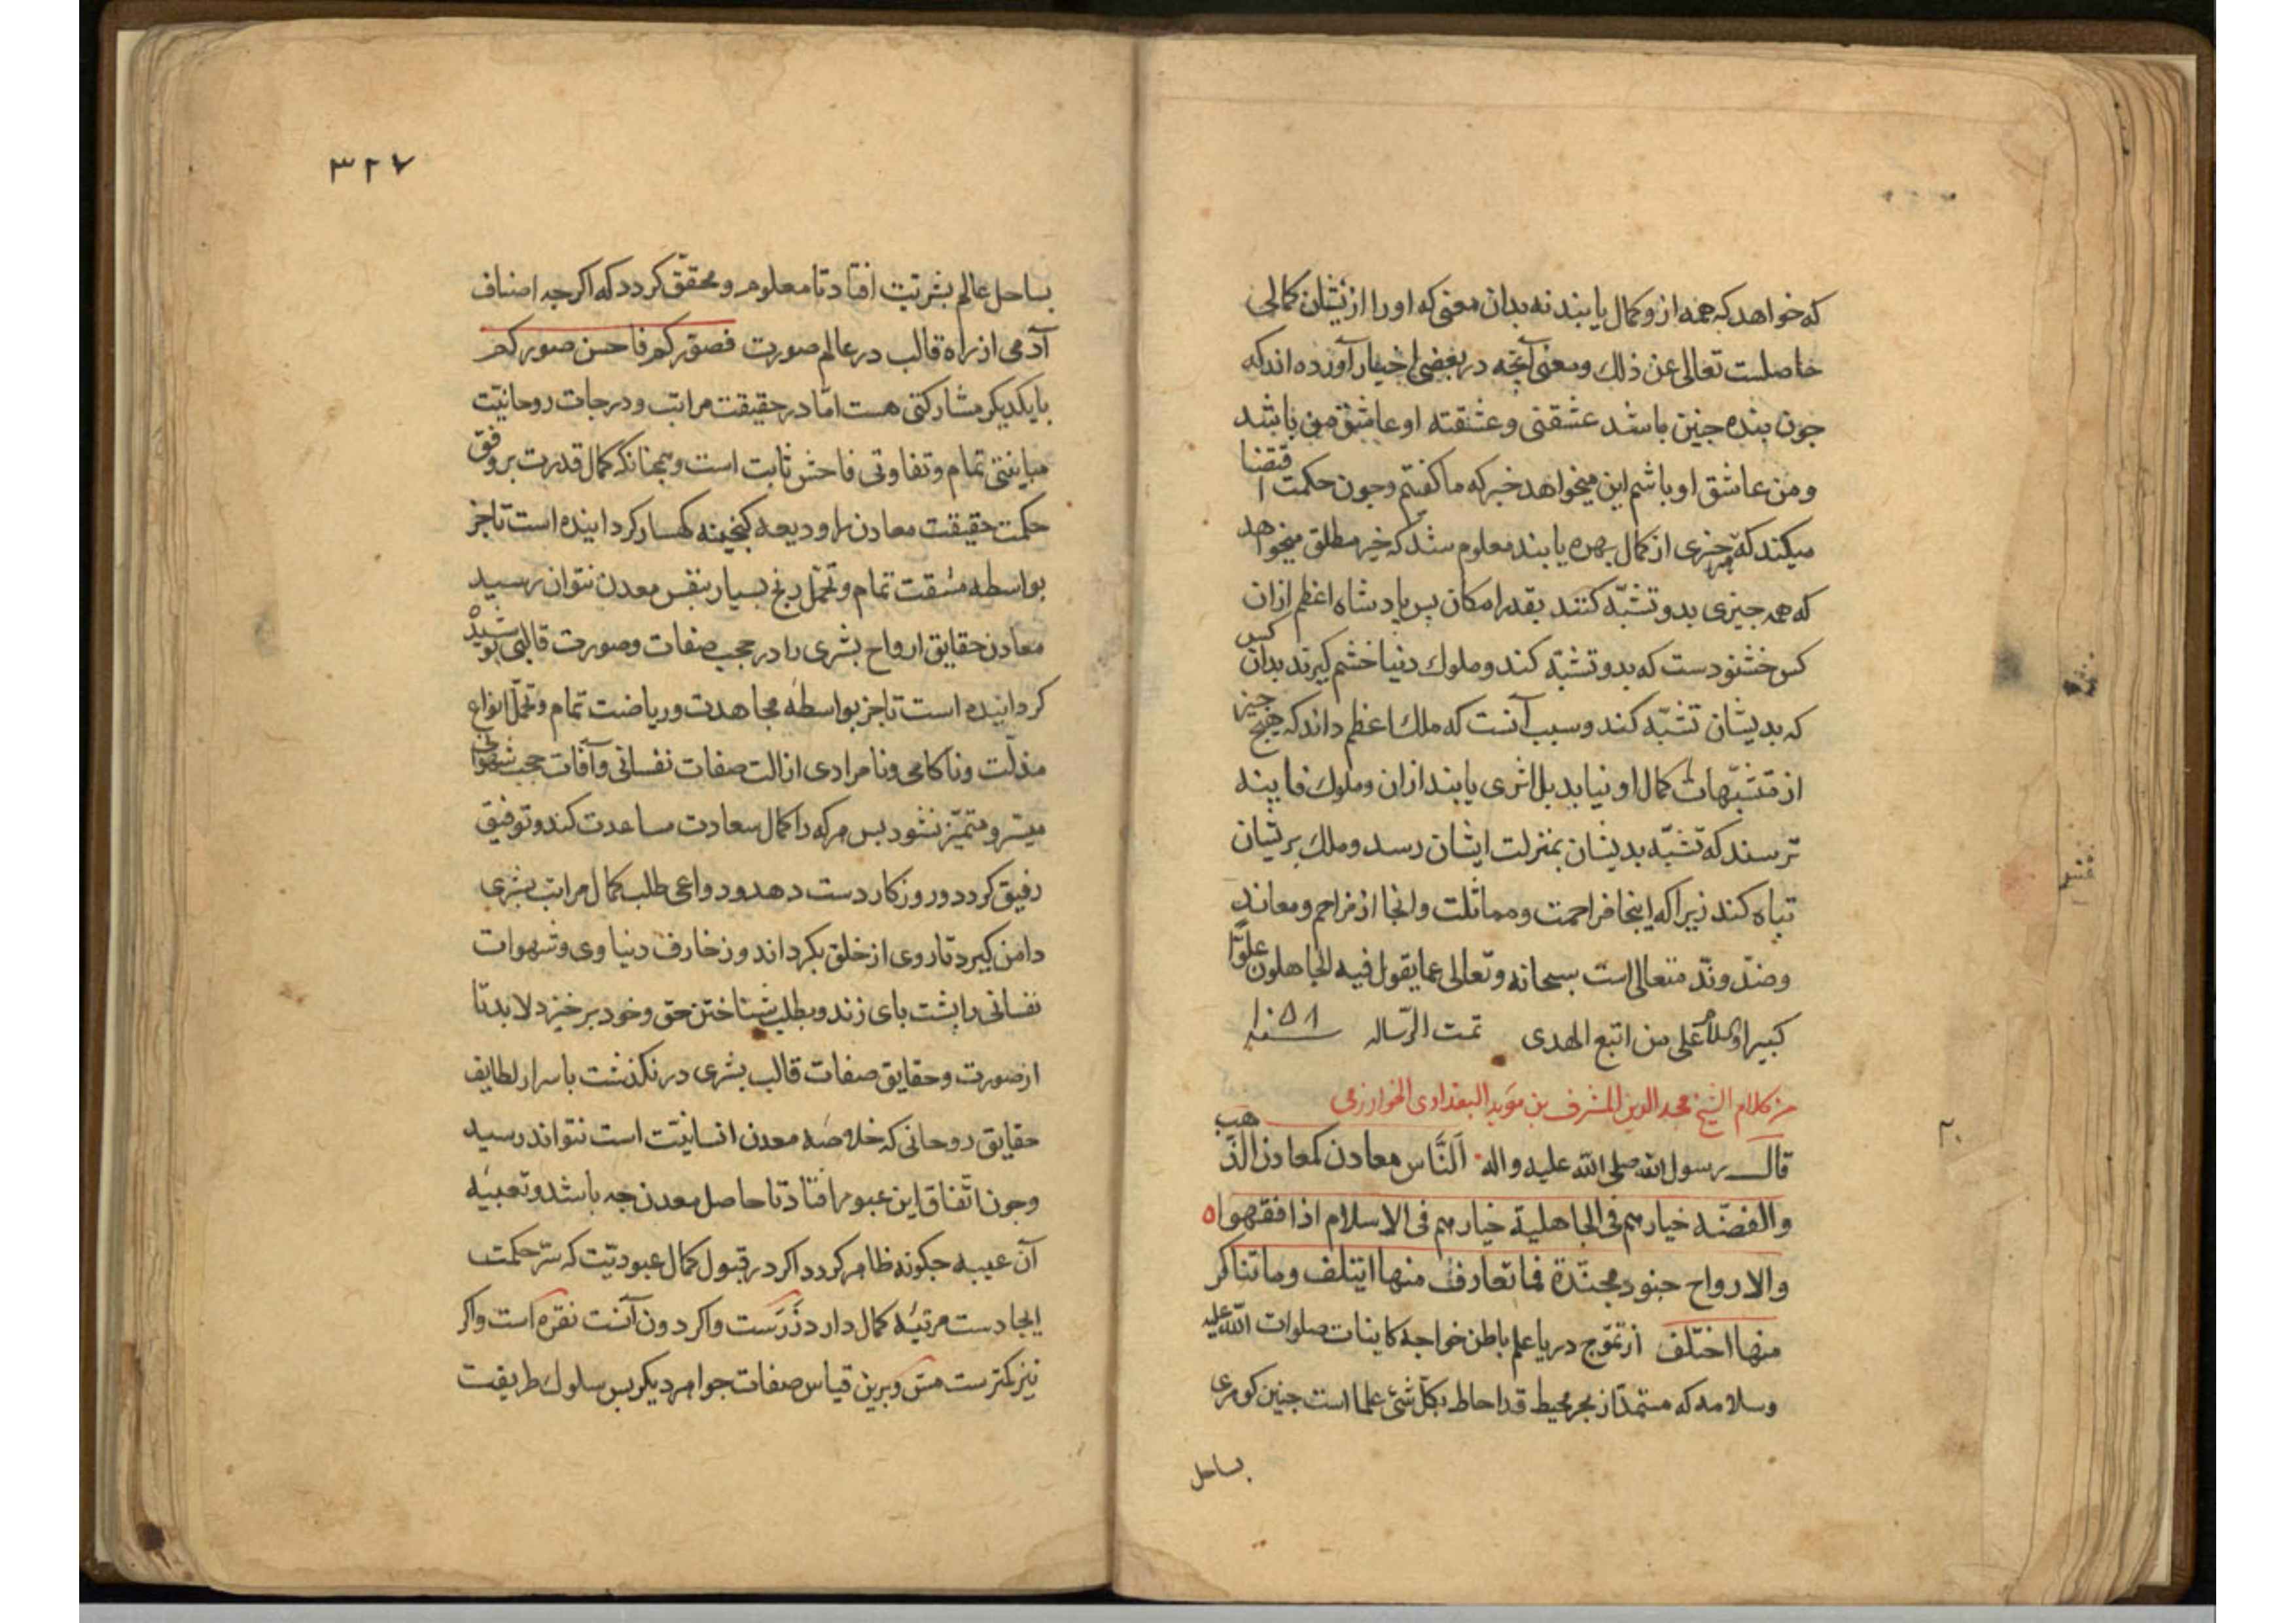 که خواهد که همه ازو کمال یابند نه بدان معنی که او را ازیشان کمالی
حاصلست تعالی عن ذلك و معنی آنچه در بعضی اخبار آورده اند که
جون بنده جنین باشد عشقنی و عشقته او عاشق من باشد
و من عاشق او باشم این میخواهد خبر که ما کفتم وجون حکمت اقتضا
میکند که هر جیزی از کمال بهره یابند معلوم شد که خیر مطلق میخواهد
که همه جیزی بدو تشبّه کنند بقدر امکان بس پادشاه اعظم ازان
کس خشنودست که بدو تشبّه کند و ملوك دنیا خشم کیرند بدان کس
که بدیشان تشبّه کند و سبب آنست که ملك اعظم داند که هیج جیز
از متشبّهات کمال او نیابد بل اثری یابند ازان و ملوك فاینه
ترسند که تشبّه بدیشان بمنزلت ایشان رسد و ملك بریشان
تباه کند زیرا که اینجا مزاحمت و مماثلت و انجا از مزاحم و معاند
و ضدّ و ندّ متعالی است سبحانه و تعالی عما یقول فیه الجاهلون علوّا
کبیرا والسلام علی من اتبع الهدی تمت الرّساله سنه ۱۰۵۸
من کلام الشیخ مجد الدین المشرف بن موید البغدادی الخوارزمی
قال رسول الله صلی الله علیه و اله اَلنَّاس معادن کمعادن الذّهب
والفضّه خیارهم فی الجاهلیة خیارهم فی الاسلام اذا فقهوا ه
والارواح جنود مجنّدة فما تعارف منها ایتلف وما تناکر
منها اختلف از تموّج دریا علم باطن خواجهٔ کاینات صلوات الله علیه
و سلامه که مستمدّ از بحر محیط قد احاط بکلّ شئ علما است جنین کوهری
بساحل
۳۲۷
بساحل عالم بشریّت افتاد تا معلوم و محقّق کردد که اکرجه اصناف
آدمی از راه قالب در عالم صورت فصوّرکم فاحسن صورکم
با یکدیکر مشارکتی هست امّا در حقیقت مراتب و درجات روحانیّت
مباینتی تمام و تفاوتی فاحش ثابت است و همجنانکه کمال قدرت بر وفق
حکمت حقیقت معادن را ودیعه کنجینه کهسار کردانیده است تا جز
بواسطه مشقت تمام و تحمّل رنج بسیار بنفس معدن نتوان رسید
معادن حقایق ارواح بشری را در حجب صفات و صورت قالبی پوشیده
کردانیده است تا جز بواسطهٔ مجاهدت و ریاضت تمام و تحمّل انواع
مذلّت و ناکامی و نامرادی ازالت صفات نفسانی و آفات حجب شهوانی
میسّر و متمیّز نشود بس هر که را کمال سعادت مساعدت کند و توفیق
رفیق کردد و روزکار دست دهد و دواعی طلب کمال مراتب بشری
دامن کیرد تا روی از خلق بکرداند و زخارف دنیاوی و شهوات
نفسانی را پشت بای زند و بطلب شناختن حق و خود برخیزد لابد تا
از صورت و حقایق صفات قالب بشری در نکذشت با سرار لطایف
حقایق روحانی که خلاصهٔ معدن انسانیّت است نتواند رسید
و جون اتّفاق این عبور افتاد تا حاصل معدن جه باشد و تعبیهٔ
آن عیبه جکونه ظاهر کردد اکر در قبول کمال عبودیّت که سرّ حکمت
ایجادست مرتبهٔ کمال دارد زَرَست و اکر دون آنست نقره است و اکر
نیز کمترست مس و برین قیاس صفات جواهر دیکر بس سلوك طریقت